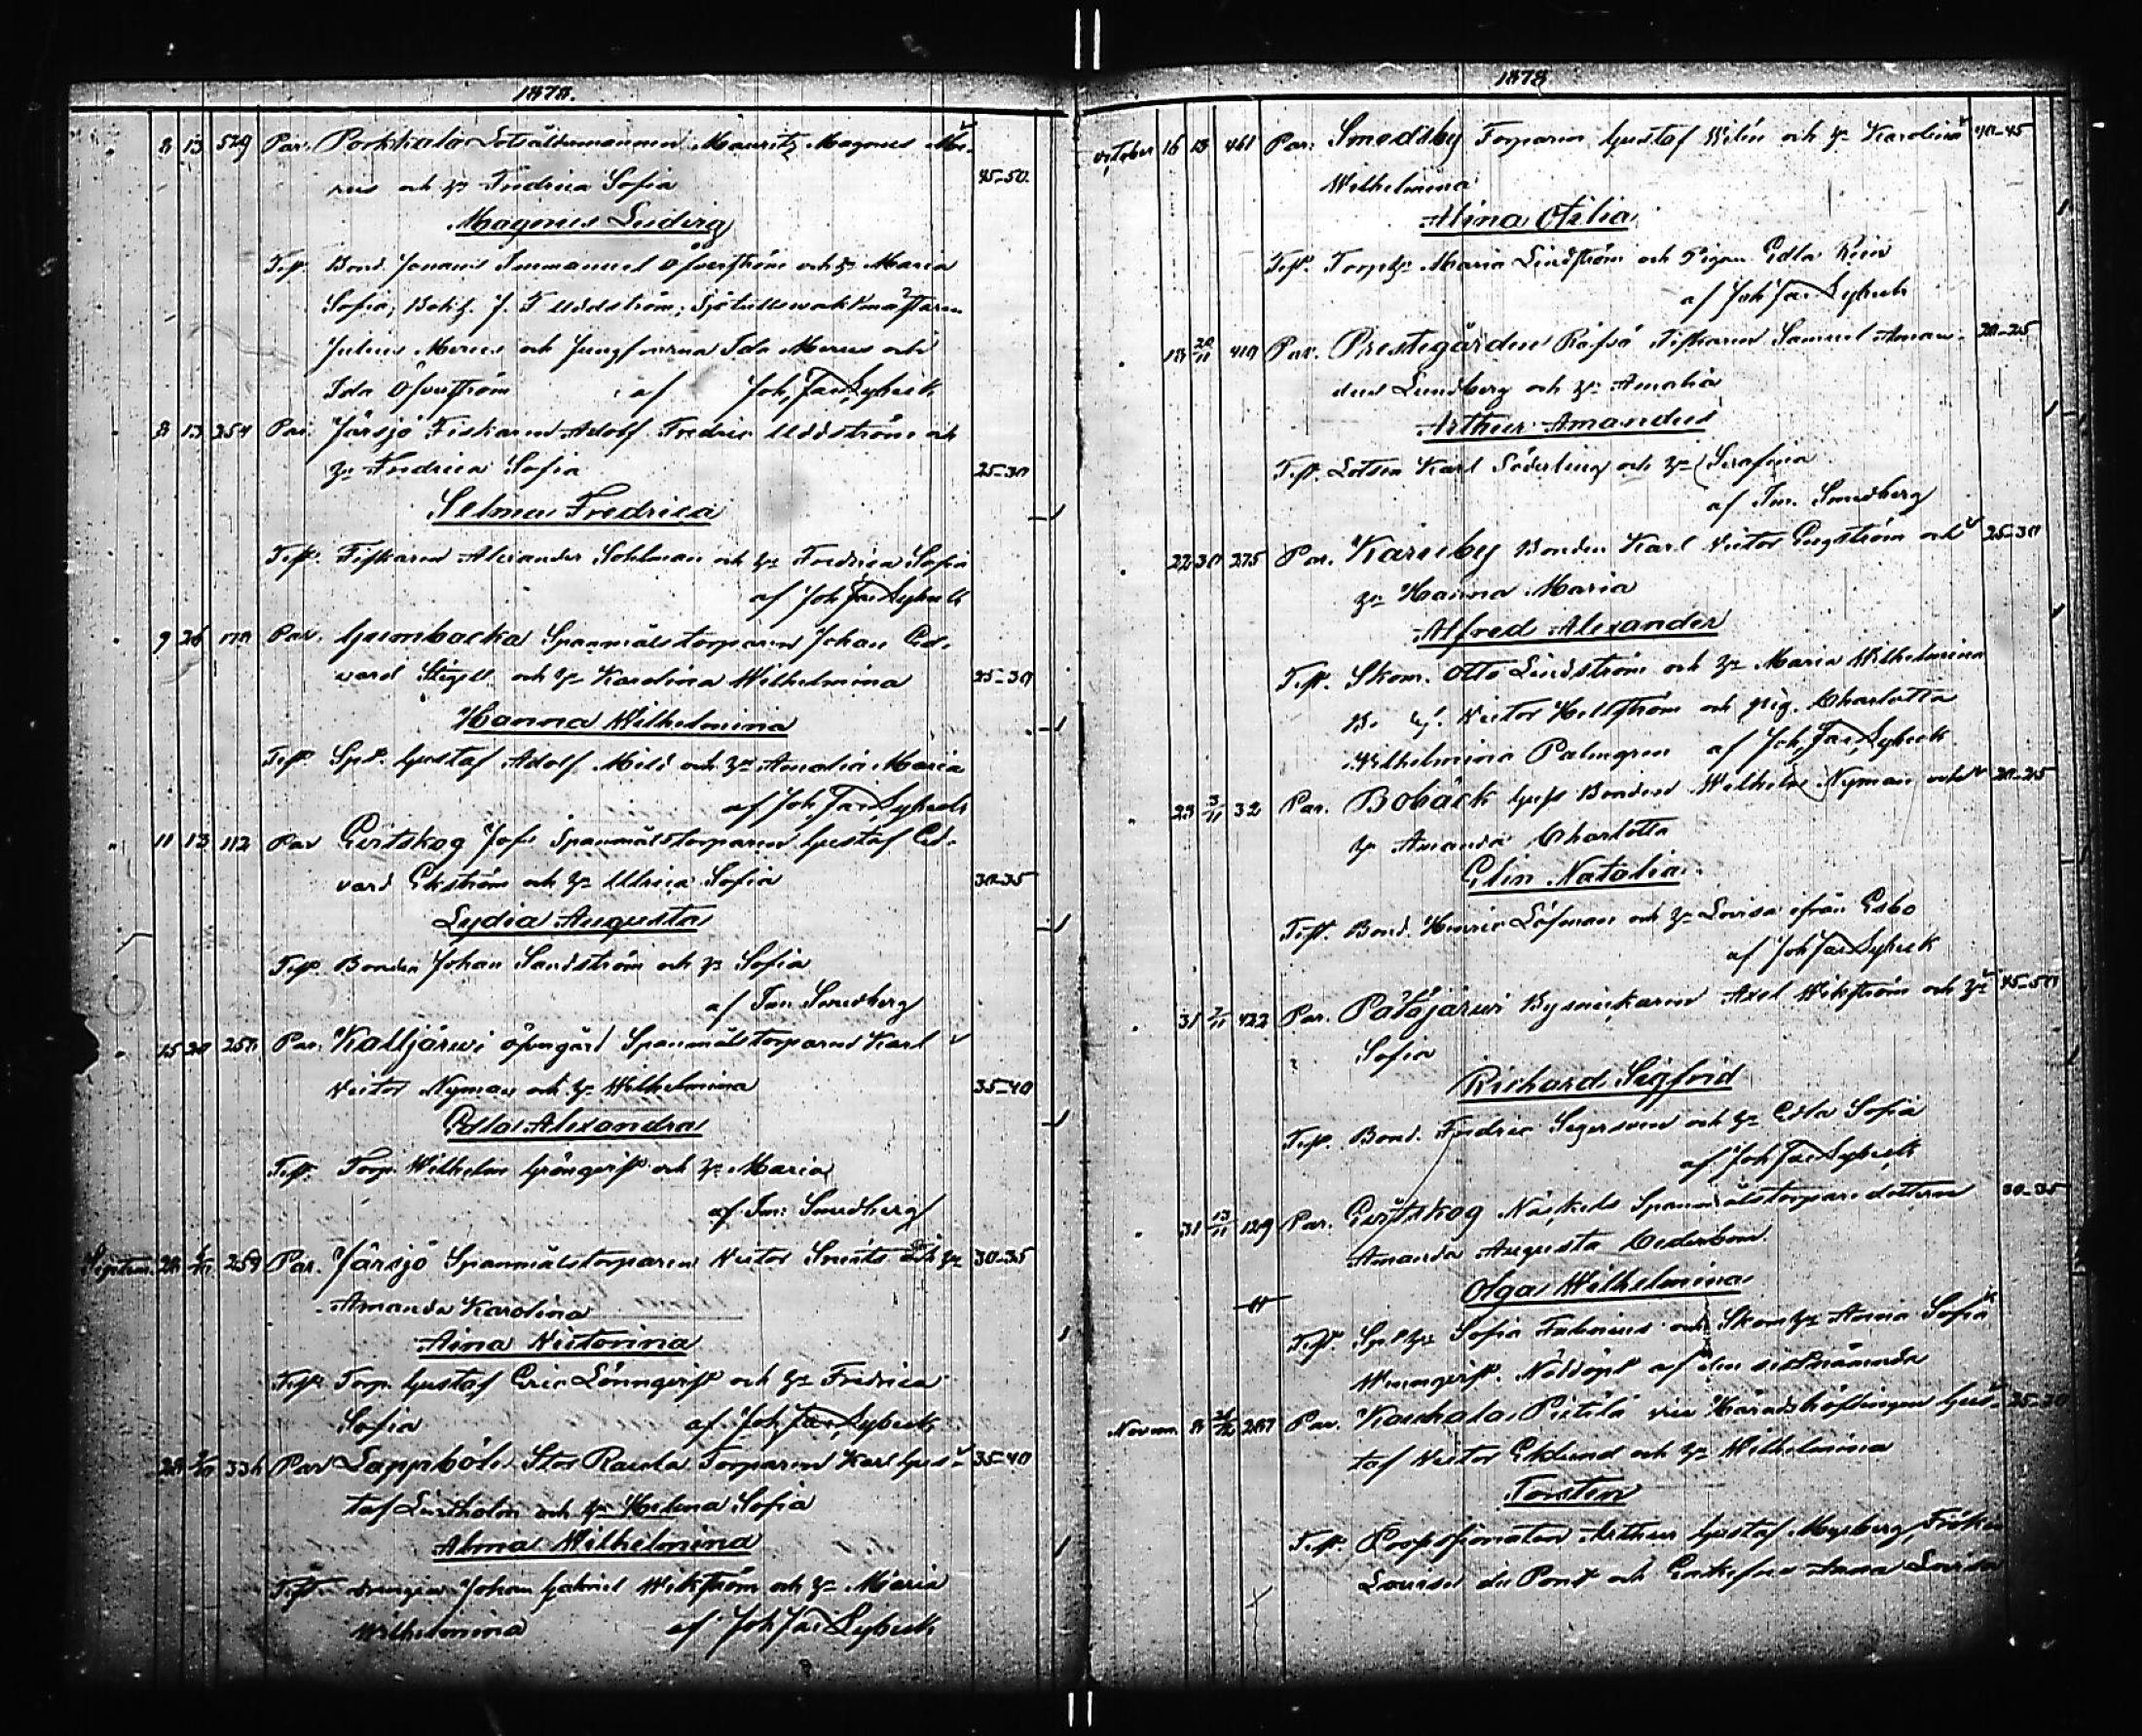 1878.
8 13 529 Par. Porkkala Lotsåldermannen Mauritz Magnus Me-
rus och h. Fredrica Sofia 45-50.
Magnus Ludvig
Test. Bond. Johan Immanuel Öfverström och h. Maria
Sofia; J. F. Uddström;
Julius Merus och Jungfrurna Ida Merus och
Ida Öfverström af Joh. Far. Lybeck
8 13 254 Par. Järsjö Fiskaren Adolf Fredric Uddström och
h. Fredrica Sofia 25-30
Selma Fredrica
Test. Fiskaren Alexander Sohlman och h. Fredrica Sofia
af Joh. Far. Lybeck
9 26 Par. Gunnbacka Spannmålstorparen Johan Ed-
vard Stigell och h. Karolina Wilhelmina 25-30
Hanna Wilhelmina
Test. Spt. Gustaf Adolf Mild och h. Amalia Maria
af Joh. Far. Lybeck
11 13 112 Par. Evitskog Spannmålstorparen Gustaf Ed-
vard Ekström och h. Ulrica Sofia 30-35
Lydia Augusta
Test. Bonden Johan Sandström och h. Sofia
af Im. Smedberg
15 20 250 Par. Kalljärwi öfvergård Spannmålstorparen Karl
Victor Nyman och h. Wilhelmina 35-40
Edla Alexandra
Test. Torp. Wilhelm Grönqvist och h. Maria
af Im. Smedberg
Septem. 28 259 Par. Järsjö Spannmålstorparen Victor Smeds och h. 30-35
Amanda Karolina
Aina Victorina
Test. Torp. Gustaf Eric Lönnqvist och h. Fredrica
Sofia af Joh. Far. Lybeck
28 336 Par. Lappböle Stor Raula Torparen Karl Gus- 35-40
taf Lindholm och h. Helena Sofia
Alma Wilhelmina
Test. drengen Johan Gabriel Wikström och h. Maria
Wilhelmina af Joh. Far. Lybeck
1878
October 16 18 461 Par. Smedsby Torparen Gustaf Wilén och h. Karolina 40-45
Wilhelmina
Alina Otilia
Test. Torp. h. Maria Lindström och Pigan Edla Rein
af Joh. Far. Lybeck
18 20/11 419 Par. Prestegården Räfsö Fiskaren Samuel Aman- 20-25
dus Lundberg och h. Amalia
Arthur Amandus
Test. Lotsen Karl Söderling och h. Serafina
af Im. Smedberg
22 30 275 Par. Karuby Bonden Karl Victor Engström och 25-30
h. Hanna Maria
Alfred Alexander
Test. Skom. Otto Lindström och h. Maria Wilhelmina
Victor Hellström och pig. Charlotta
Wilhelmina Palmgren af Joh. Far. Lybeck
23 3/11 32 Par. Bobäck Bonden Wilhelm Nyman och 20-25
h. Amanda Charlotta
Elin Natalia
Test. Bond. Henric Löfman och h. Lovisa ifrån Esbo
af Joh. Far. Lybeck
31 7/11 422 Par. Påtöjärwi Bysnickaren Axel Wikström och h. 45-50
Sofia
Richard Sigfrid
Test. Bond. Fredric Segersven och h. Edla Sofia
af Joh. Far. Lybeck
31 13/11 129 Par. Evitskog Näckels Spannmålstorparedottern 30-35
Amanda Augusta Cederbom
Olga Wilhelmina
Test. Spt. h. Sofia Fabricius och Skom. h. Anna Sofia
Wennqvist. Nöddöpt af den sistnämnda
Novem. 8 287 Par. Kauhala Pietilä vice Häradshöfdingen Gus- 25-30
taf Victor Eklund och h. Wilhelmina
Torsten
Test. Possessionaten Arthur Gustaf Mysberg, Fröken
Lovise du Pont och Enkefru Anna Lovisa